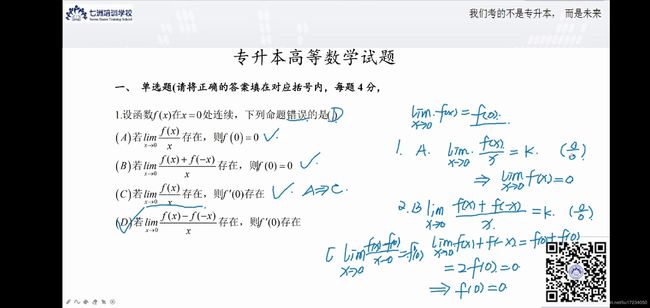 七洲培训学校
Seven States Training School
我们考的不是专升本, 而是未来
专升本高等数学试题
一、 单选题(请将正确的答案填在对应括号内,每题 4 分,
1.设函数f(x)在x=0处连续,下列命题错误的是(D)
(A)若lim x→0 f(x)/x 存在,则f(0)=0 ✓
(B)若lim x→0 (f(x)+f(-x))/x 存在,则f(0)=0 ✓
(C)若lim x→0 f(x)/x 存在,则f′(0)存在 ✓ A⇒C.
(D)若lim x→0 (f(x)-f(-x))/x 存在,则f′(0)存在
lim x→0 f(x)=f(0).
1. A. lim x→0 f(x)/x = K. (0/0)
⇒ lim x→0 f(x)=0
2.B lim x→0 (f(x)+f(-x))/x =K. (0/0)
lim x→0 f(x)+f(-x)=f(0)+f(0)
=2f(0)=0
⇒ f(0)=0
lim x→0 (f(x)-f(0))/(x-0) =f′(0)